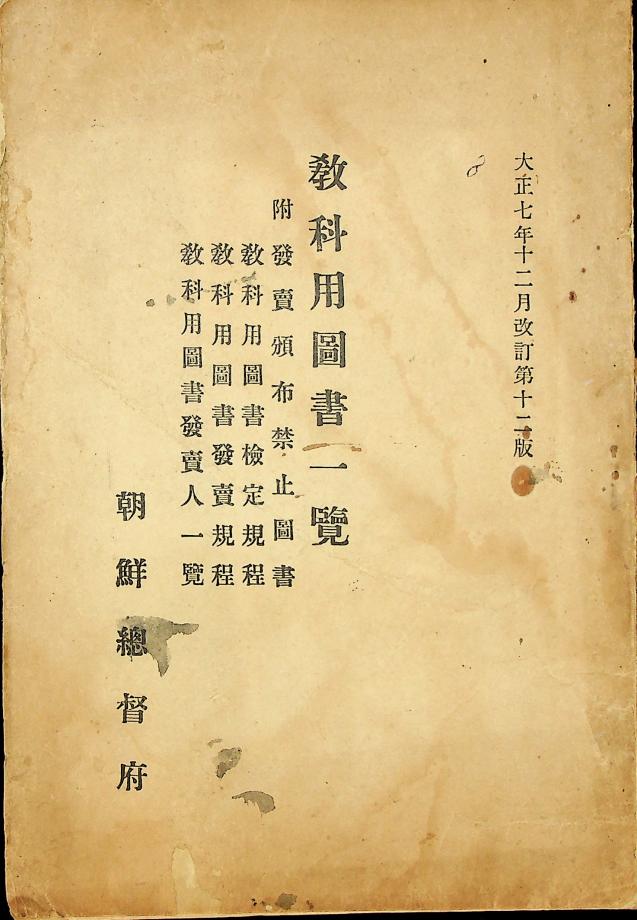 大正七年十二月改訂第十二版
敎科用圖書一覽
附發賣頒布禁止圖書
敎科用圖書檢定規程
敎科用圖書發賣規程
敎科用圖書發賣人一覽
朝鮮總督府